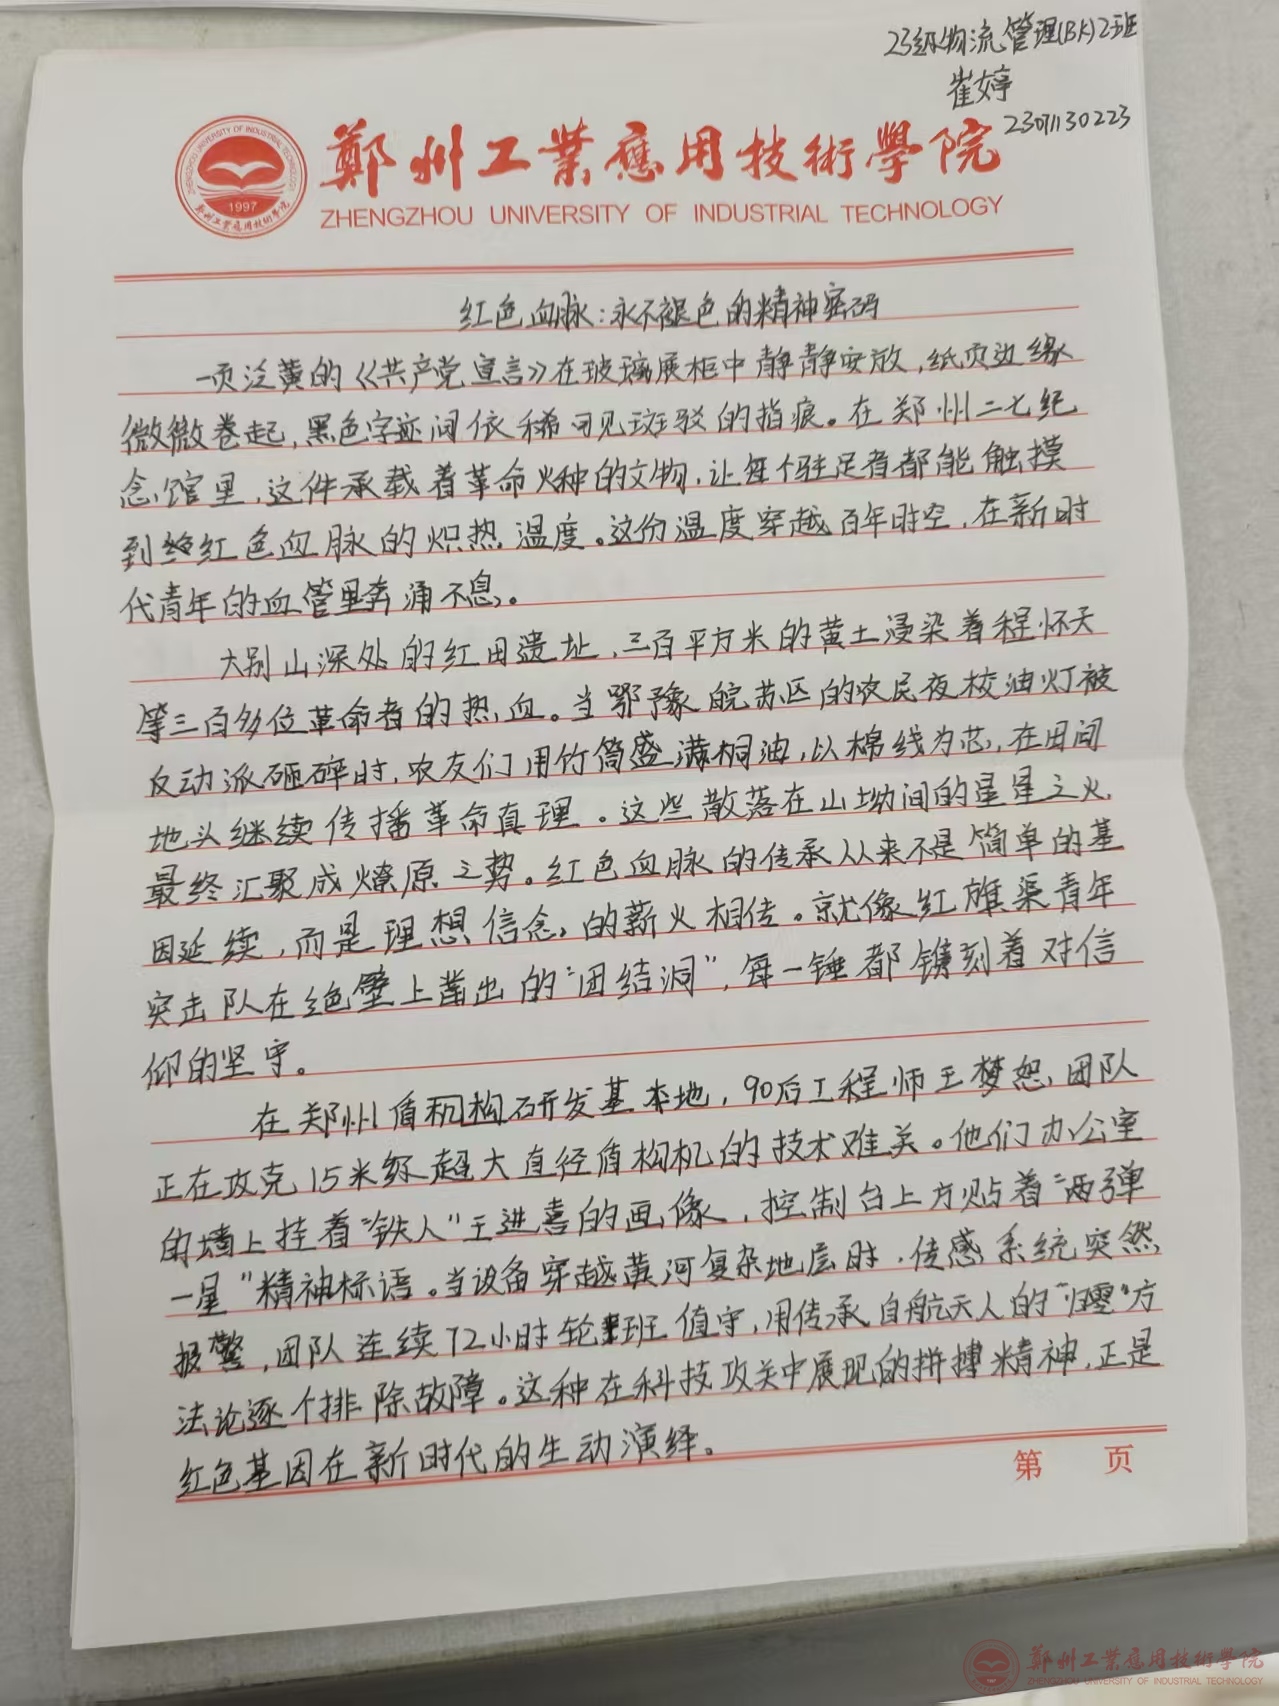 23级物流管理(BK)2班
崔婷
2301130223
鄭州工業應用技術學院
ZHENGZHOU UNIVERSITY OF INDUSTRIAL TECHNOLOGY
ZHENGZHOU UNIVERSITY OF INDUSTRIAL TECHNOLOGY
1997
郑州工業應用技術學院
红色血脉：永不褪色的精神密码
一页泛黄的《共产党宣言》在玻璃展柜中静静安放，纸页边缘
微微卷起，黑色字迹间依稀可见斑驳的指痕。在郑州二七纪
念馆里，这件承载着革命火种的文物，让每个驻足者都能触摸
到红色血脉的炽热温度。这份温度穿越百年时空，在新时
代青年的血管里奔涌不息。
大别山深处的红田遗址，三百平方米的黄土浸染着程怀天
等三百多位革命者的热血。当鄂豫皖苏区的农民夜校油灯被
反动派砸碎时，农友们用竹筒盛满桐油，以棉线为芯，在田间
地头继续传播革命真理。这些散落在山坳间的星星之火
最终汇聚成燎原之势。红色血脉的传承从来不是简单的基
因延续，而是理想信念的薪火相传。就像红旗渠青年
突击队在绝壁上凿出的“团结洞”，每一锤都镌刻着对信
仰的坚守。
在郑州盾构机研发基本地，90后工程师王梦恕团队
正在攻克15米级超大直径盾构机的技术难关。他们办公室
的墙上挂着“铁人”王进喜的画像，控制台上方贴着“两弹
一星”精神标语。当设备穿越黄河复杂地层时，传感系统突然
报警，团队连续72小时轮班值守，用传承自航天人的“归零”方
法论逐个排除故障。这种在科技攻关中展现的拼搏精神，正是
红色基因在新时代的生动演绎。
第 页
鄭州工業應用技術學院
ZHENGZHOU UNIVERSITY OF INDUSTRIAL TECHNOLOGY